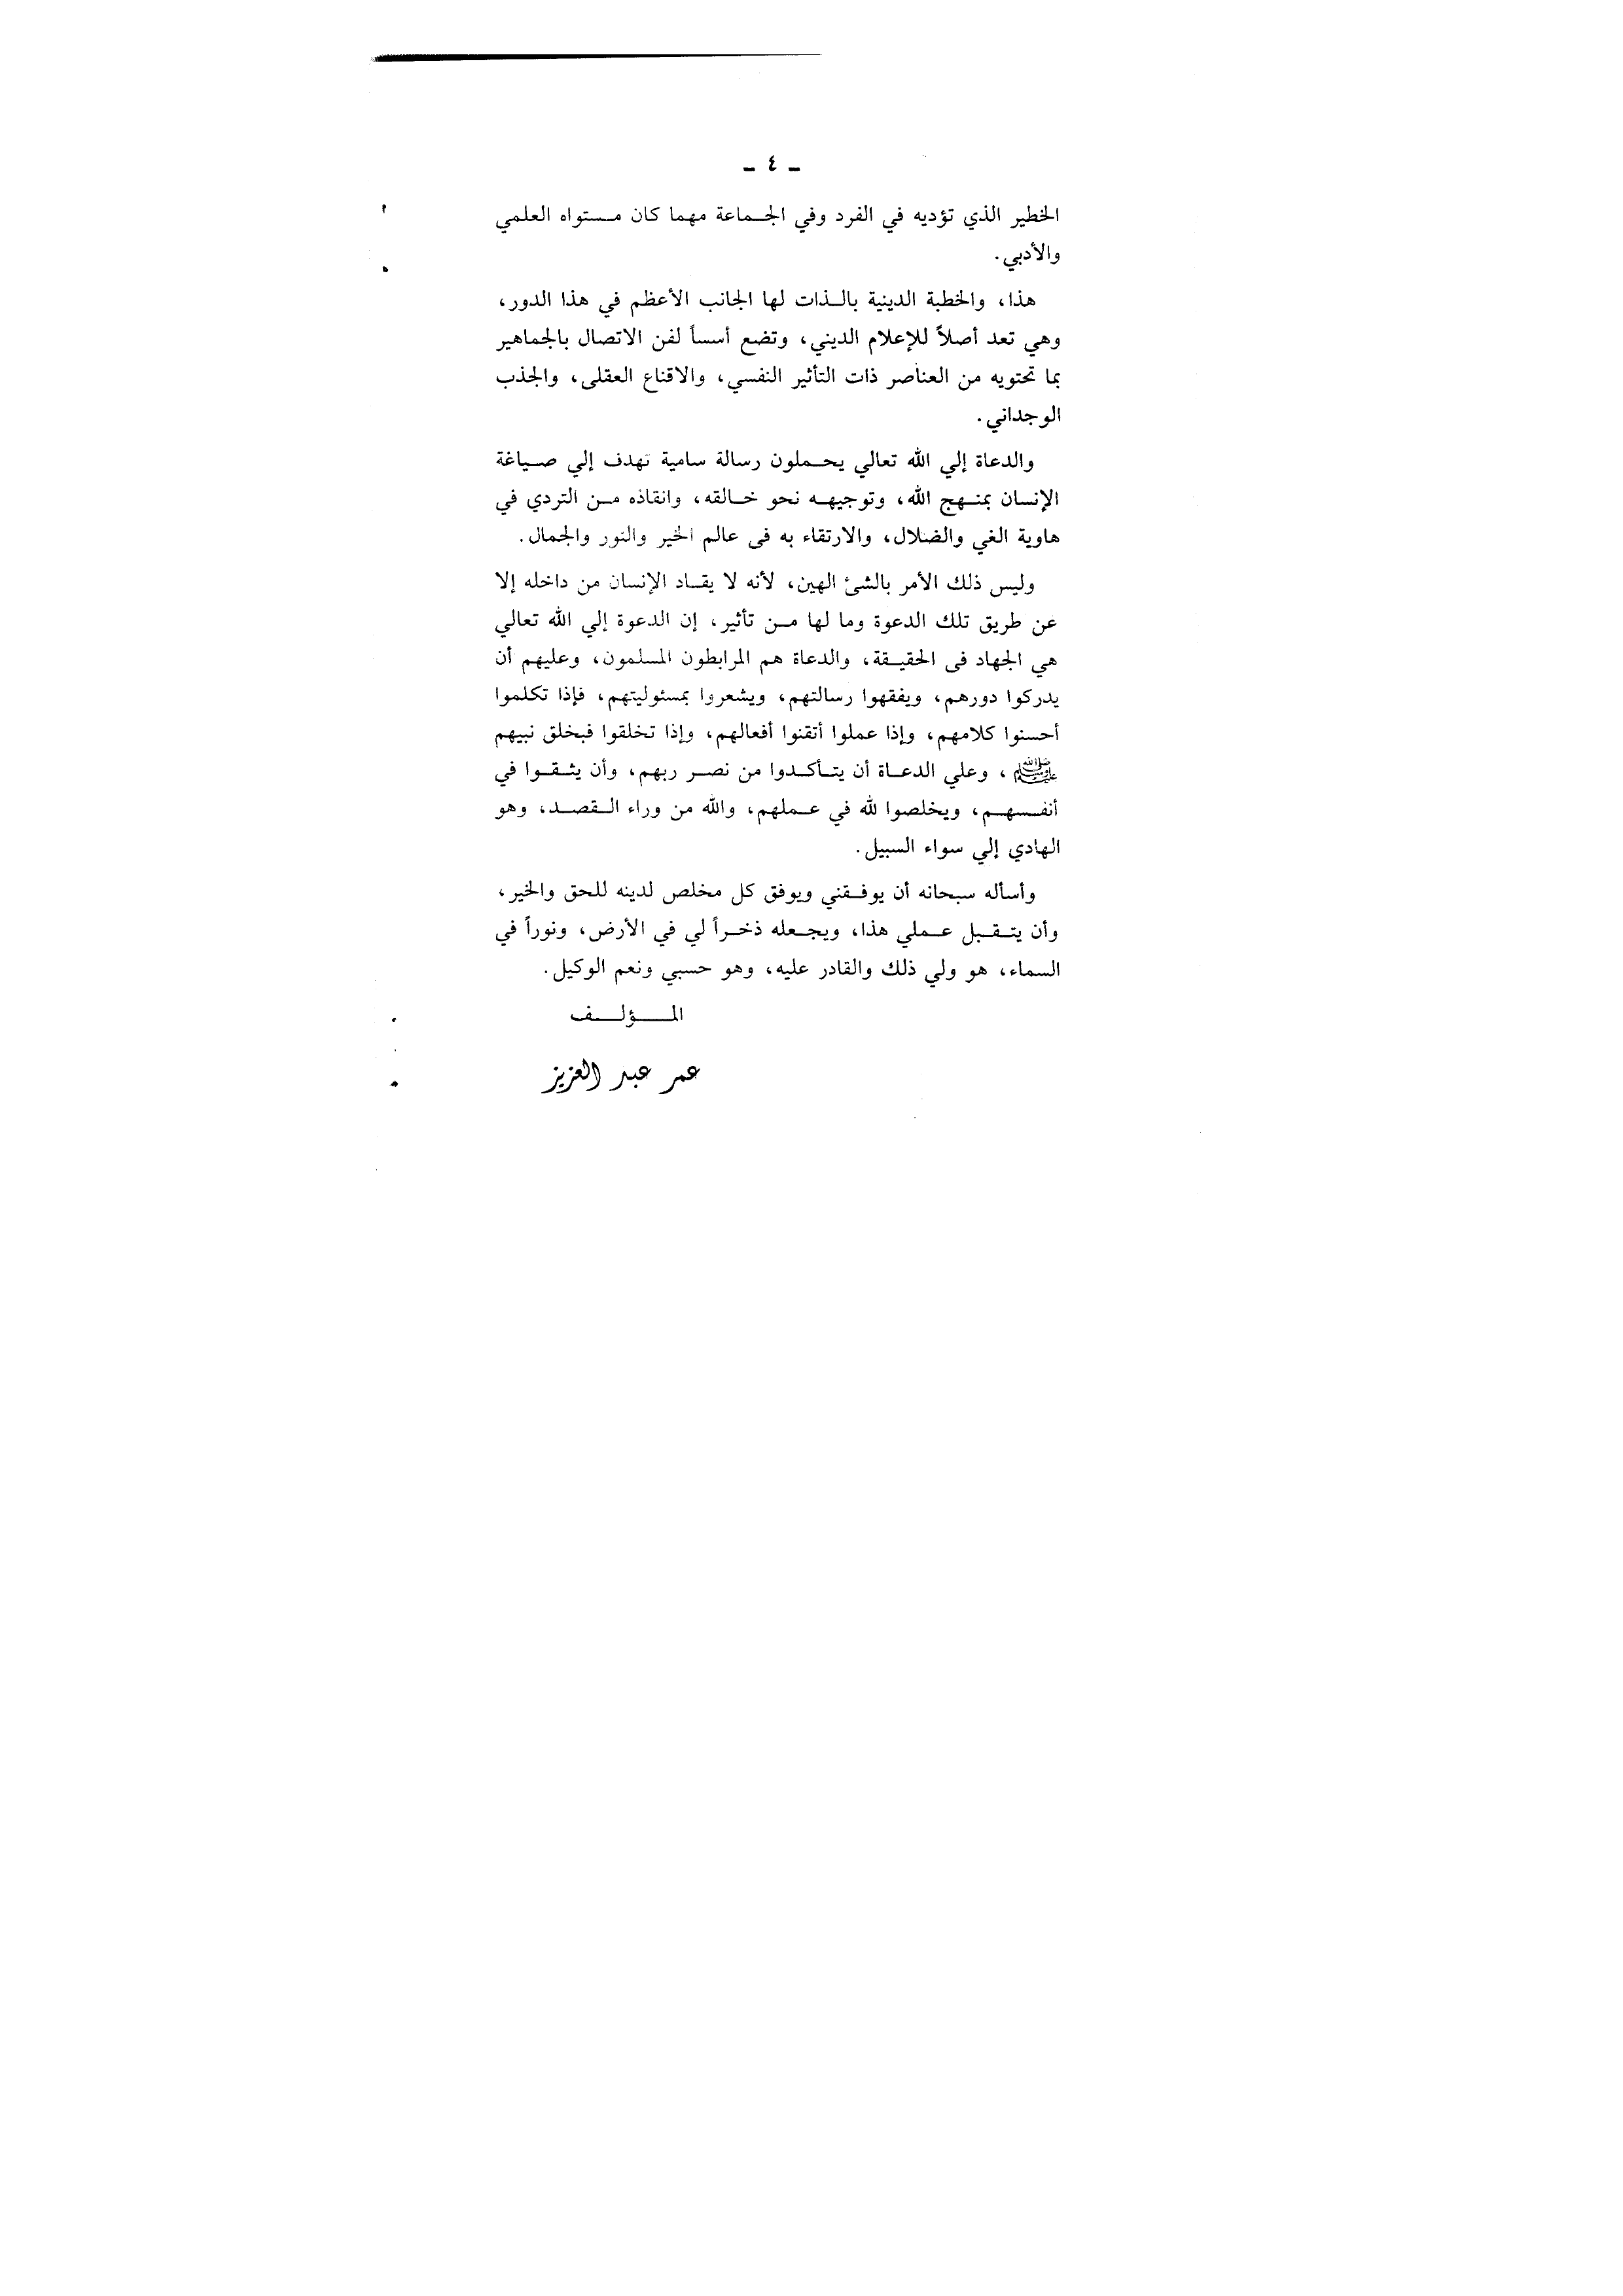 ـ ٤ ـ
الخطير الذي تؤديه في الفرد وفي الجماعة مهما كان مستواه العلمي
والأدبي.
هذا، والخطبة الدينية بالذات لها الجانب الأعظم في هذا الدور،
وهي تعد أصلاً للإعلام الديني، وتضع أسساً لفن الاتصال بالجماهير
بما تحتويه من العناصر ذات التأثير النفسي، والاقناع العقلى، والجذب
الوجداني.
والدعاة إلي الله تعالي يحملون رسالة سامية تهدف إلي صياغة
الإنسان بمنهج الله، وتوجيهه نحو خالقه، وانقاذه من التردي في
هاوية الغي والضلال، والارتقاء به فى عالم الخير والنور والجمال.
وليس ذلك الأمر بالشئ الهين، لأنه لا يقاد الإنسان من داخله إلا
عن طريق تلك الدعوة وما لها من تأثير، إن الدعوة إلي الله تعالي
هي الجهاد فى الحقيقة، والدعاة هم المرابطون المسلمون، وعليهم أن
يدركوا دورهم، ويفقهوا رسالتهم، ويشعروا بمسئوليتهم، فإذا تكلموا
أحسنوا كلامهم، وإذا عملوا أتقنوا أفعالهم، وإذا تخلقوا فبخلق نبيهم
ﷺ، وعلي الدعاة أن يتأكدوا من نصر ربهم، وأن يثقوا في
أنفسهم، ويخلصوا لله في عملهم، والله من وراء القصد، وهو
الهادي إلي سواء السبيل.
وأسأله سبحانه أن يوفقني ويوفق كل مخلص لدينه للحق والخير،
وأن يتقبل عملي هذا، ويجعله ذخراً لي في الأرض، ونوراً في
السماء، هو ولي ذلك والقادر عليه، وهو حسبي ونعم الوكيل.
المؤلف
عمر عبد العزيز